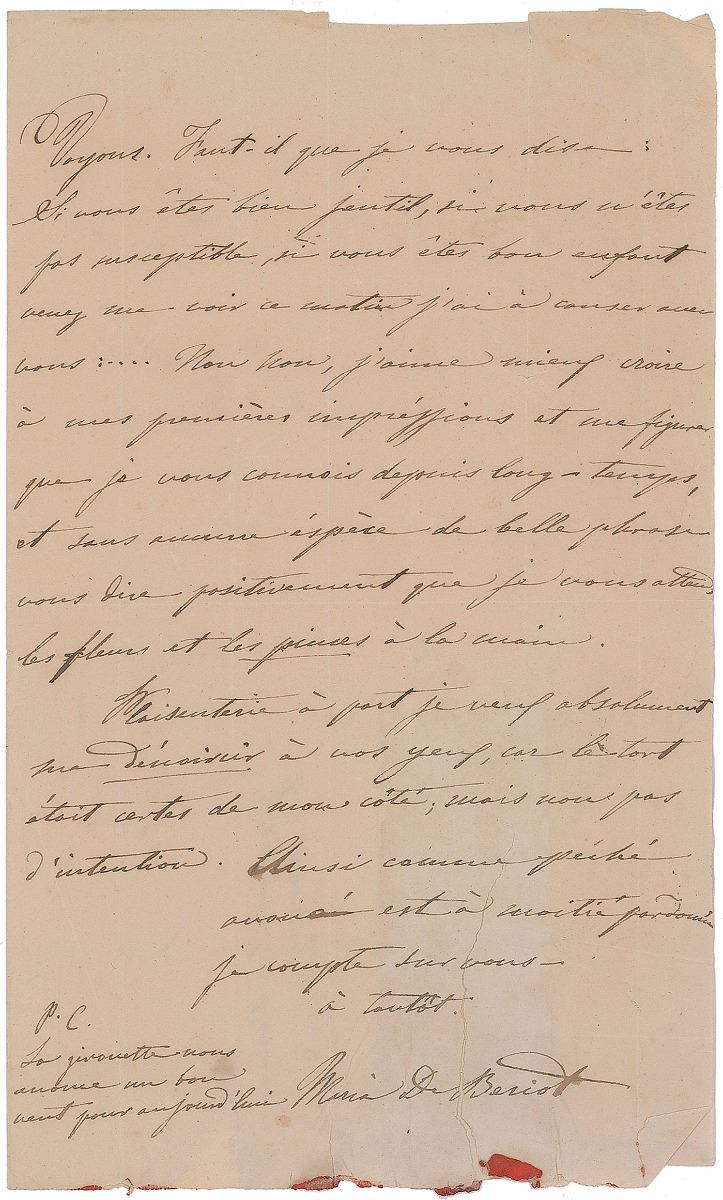 Voyons. Faut-il que je vous dise :
Si vous êtes bien jentil, si vous n'êtes
pas susceptible, si vous êtes bon enfant
venez me voir ce matin j'ai à causer avec
vous :.... Non non, j'aime mieux croire
à mes premières impréssions et me figurer
que je vous connois depuis long-temps,
et sans aucune éspèce de belle phrase
vous dire positivement que je vous attends
les fleurs et les pinces à la main.
Plaisenterie à part je veux absolument
me dénoircir à vos yeux, car le tort
était certes de mon côté; mais non pas
d'intention. Ainsi comme péché
avoué est à moitié pardonné
je compte sur vous
à tantôt.
P. C.
La girouette nous
anonce un bon
vent pour aujourd'hui
Maria De Beriot